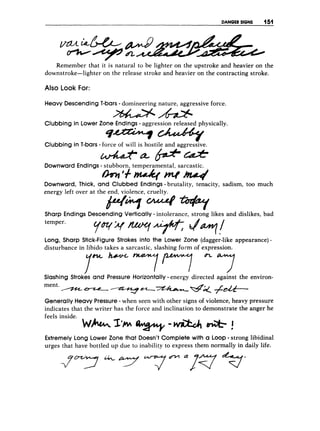 DANGER SIGNS 151
variable and misplaced
on up and release
Remember that it is natural to be lighter on the upstroke and heavier on the
downstroke—lighter on the release stroke and heavier on the contracting stroke.
Also Look For:
Heavy Descending T-bars - domineering nature, aggressive force.
that bat
Clubbing in Lower Zone Endings - aggression released physically.
getting chubby
Clubbing in T-bars - force of will is hostile and aggressive.
what a fat cat
Downward Endings - stubborn, temperamental, sarcastic.
Don't make me mad
Downward, Thick, and Clubbed Endings - brutality, tenacity, sadism, too much
energy left over at the end, violence, cruelty.
feeling cruel today
Sharp Endings Descending Vertically - intolerance, strong likes and dislikes, bad
temper.
you're never right, I am!
Long, Sharp Stick-Figure Strokes into the Lower Zone (dagger-like appearance) -
disturbance in libido takes a sarcastic, slashing form of expression.
you have many
Slashing Strokes and Pressure Horizontally - energy directed against the environ-
ment.
Generally Heavy Pressure - when seen with other signs of violence, heavy pressure
indicates that the writer has the force and inclination to demonstrate the anger he
feels inside.
When I'm angry, - watch out !
Extremely Long Lower Zone that Doesn't Complete with a Loop - strong libidinal
urges that have bottled up due to inability to express them normally in daily life.
going in any way on a day.